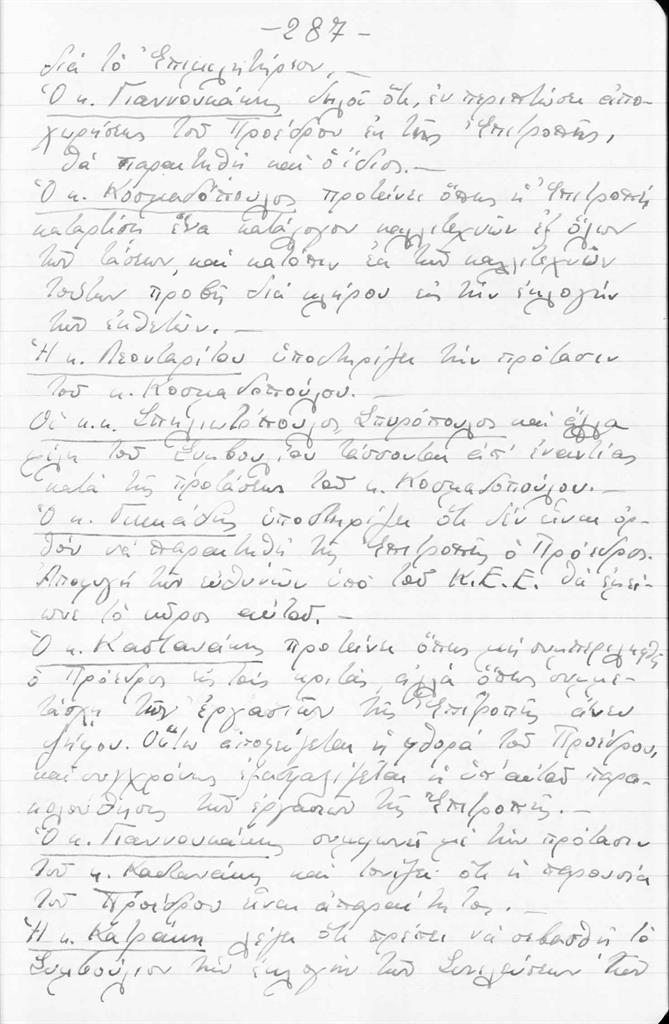 -287-
διά τό Ἐπιμελητήριον. -
Ὁ κ. Γιαννουκάκης δηλοῖ ὅτι, ἐν περιπτώσει ἀπο-
χωρήσεως τοῦ Προέδρου ἐκ τῆς Ἐπιτροπῆς,
θά παραιτηθῆ καί ὁ ἴδιος. -
Ὁ κ. Κοσμαδόπουλος προτείνει ὅπως ἡ Ἐπιτροπή
καταρτίση ἕνα κατάλογον καλλιτεχνῶν ἐξ ὅλων
τῶν τάσεων, καί κατόπιν ἐκ τῶν καλλιτεχνῶν
τούτων προβῆ διά κλήρου εἰς τήν ἐκλογήν
τῶν ἐκθετῶν. -
Ἡ κ. Λεονταρίτου ὑποστηρίζει τήν πρότασιν
τοῦ κ. Κοσμαδοπούλου. -
Οἱ κ.κ. Σπηλιωτόπουλος, Σπυρόπουλος καί ἄλλα
μέλη τοῦ Συμβουλίου τάσσονται ἀπ' ἐναντίας
κατά τῆς προτάσεως τοῦ κ. Κοσμαδοπούλου. -
Ὁ κ. ὑποστηρίζει ὅτι δέν εἶναι ὀρ-
θόν νά παραιτηθῆ τῆς Ἐπιτροπῆς ὁ Πρόεδρος.
Ἀποφυγή τῶν εὐθυνῶν ὑπό τοῦ Κ.Ε.Ε. θά ἐμεί-
ωνε τό κῦρος αὐτοῦ. -
Ὁ κ. Καστανάκης προτείνει ὅπως μή συμπεριληφθῆ
ὁ Πρόεδρος εἰς τούς κριτάς, ἀλλά ὅπως συμμε-
τάσχη τῶν ἐργασιῶν τῆς Ἐπιτροπῆς ἄνευ
ψήφου. Οὕτω ἀποφεύγεται ἡ φθορά τοῦ Προέδρου,
καί συγχρόνως ἐξασφαλίζεται ἡ ὑπ' αὐτοῦ παρα-
κολούθησις τῶν ἐργασιῶν τῆς Ἐπιτροπῆς. -
Ὁ κ. Γιαννουκάκης συμφωνεῖ μέ τήν πρότασιν
τοῦ κ. Καστανάκη καί τονίζει ὅτι ἡ παρουσία
τοῦ Προέδρου εἶναι ἀπαραίτητος. -
Ἡ κ. Κατράκη λέγει ὅτι πρέπει νά σεβασθῆ τό
Συμβούλιον τήν ἐκλογήν τῶν Συνελεύσεων τῶν